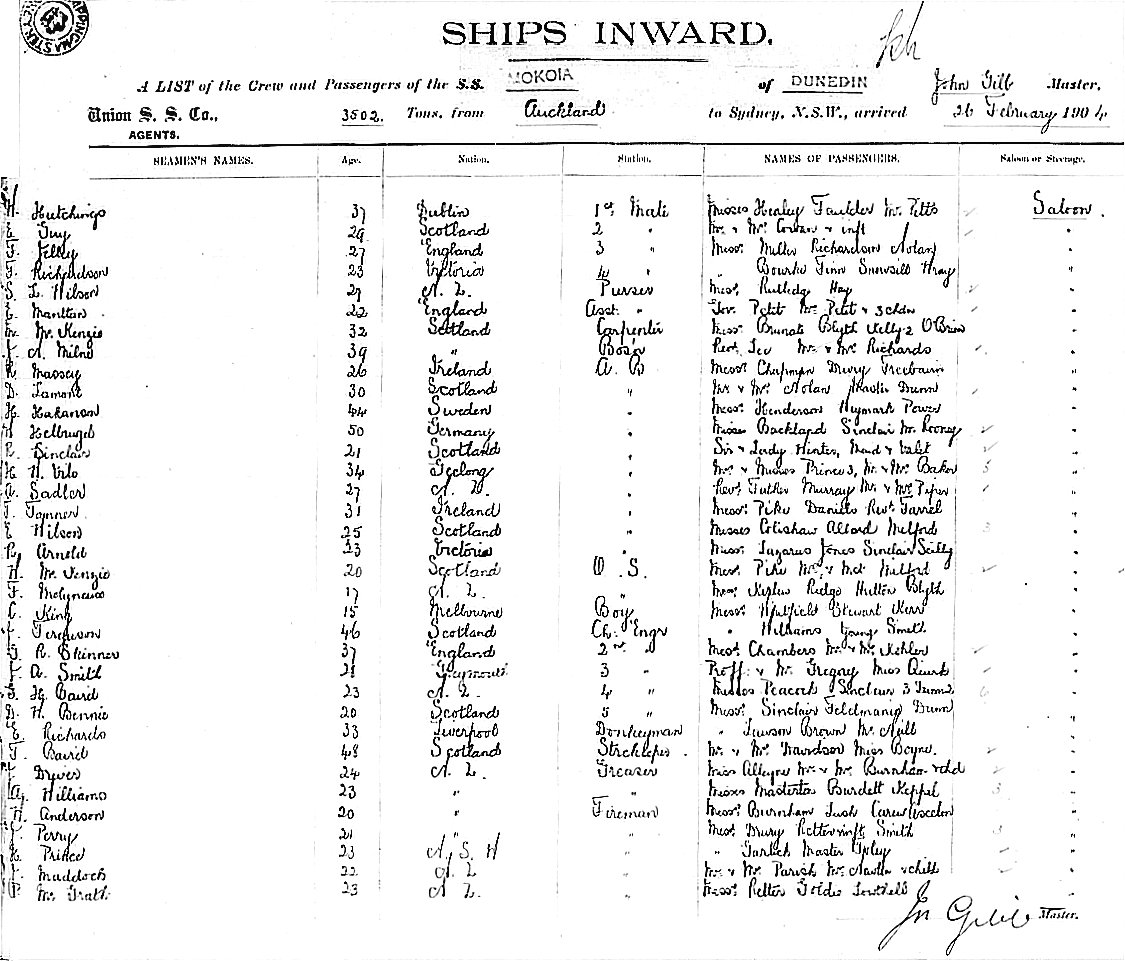 SHIPS INWARD.
A LIST of the Crew and Passengers of the S.S. MOKOIA of DUNEDIN John Gibb Master.
Union S. S. Co., 3502. Tons, from Auckland to Sydney, N.S.W., arrived 26 February 1904
AGENTS.
SEAMEN'S NAMES. Age. Nation. Station. NAMES OF PASSENGERS. Saloon or Steerage.
H. Hutchings 37 Dublin 1st Mate Misses Healey Faulder Mr. Pitts Saloon.
Guy 29 Scotland 2 " Mr. & Mrs. Cowan & inft "
Jelley 27 England 3 " Messrs. Miller Richardson Nolan "
Richardson 23 Victoria 4 " " Bourke Finn Snowsill Hray "
S. L. Wilson 29 N. Z. Purser Messrs. Rutledge Hay "
Manlton 22 England Asst. " Gov. Petit Mrs. Petit & 3 chdn "
Mc. Kenzie 32 Scotland Carpenter Messrs. Brunat Blyth Kelly 2 O'Brien "
A. Milne 39 " Bos'n Revd. Lee Mr. & Mrs. Richards "
Massey 26 Ireland A. B Messrs. Chapman Drury Freebairn "
D. Lamont 30 Scotland " Mr. & Mrs. Nolan Dunn "
H. Hakanson 44 Sweden " Messrs. Henderson Heymark Power "
Helbrugel 50 Germany " Misses Backland Sinclair Mr. Rooney "
R. Sinclair 21 Scotland " Sir & Lady Hunter, Maid & Valet "
H. H. Vilo 34 Geelong " Mrs. & Misses Prince 3, Mr. & Mrs. Baker "
A. Sadler 27 N. Z. " Revd. Father Murray Mr. & Mrs. Piper "
Tanner 31 Ireland " Messrs. Pike Daniels Revd. Farrel "
E. Wilson 25 Scotland " Misses Colishaw Allard Melford "
R. Arnold 23 Victoria " Messrs. Lazarus Jones Sinclair Scilly "
H. Mc. Kenzie 20 Scotland O. S. Messrs. Pike Mr. & Mrs. Milford "
F. Molyneaux 17 N. Z. " Messrs. Keslew Ridge Hutton Blyth "
C. King 15 Melbourne Boy Messrs. Whitfield Stewart Kerr "
J. Ferguson 46 Scotland Ch. Engr " Williams Young Smith "
G. R. Skinner 37 England 2nd " Messrs. Chambers Mr. & Mrs. Kehler "
J. A. Smith 28 Greymouth 3 " Proff. & Mrs. Gregory Miss Quirk "
G. H. Baird 23 N. Z. 4 " Misses Peacock Sinclair 3 "
D. H. Bennie 20 Scotland 5 " Messrs. Sinclair Feldmanig Dunn "
E. Richards 33 Liverpool Donkeyman " Lawson Brown Mc. Nill "
T. Baird 48 Scotland Strekeeper. Mr. & Mrs. Davidson Miss Boyne. "
J. Driver 24 N. Z. Greaser Miss Alleyne Mr. & Mrs. Burnham & chd "
A. Williams 23 " " Misses Masterta Burdett Keppel "
H. Anderson 20 " Fireman Messrs. Burnham Lush Carew "
J. Perry 21 " " Messrs. Drury Retter Smith "
H. Prince 23 N, S. W " " Garlick Master Ipley "
J. Maddock 22 N Z " Mr. & Mrs. Parish Mrs. & child "
P. Mc. Grath 23 N Z " Messrs. Retter Goldie "
Jn Gibb Master.